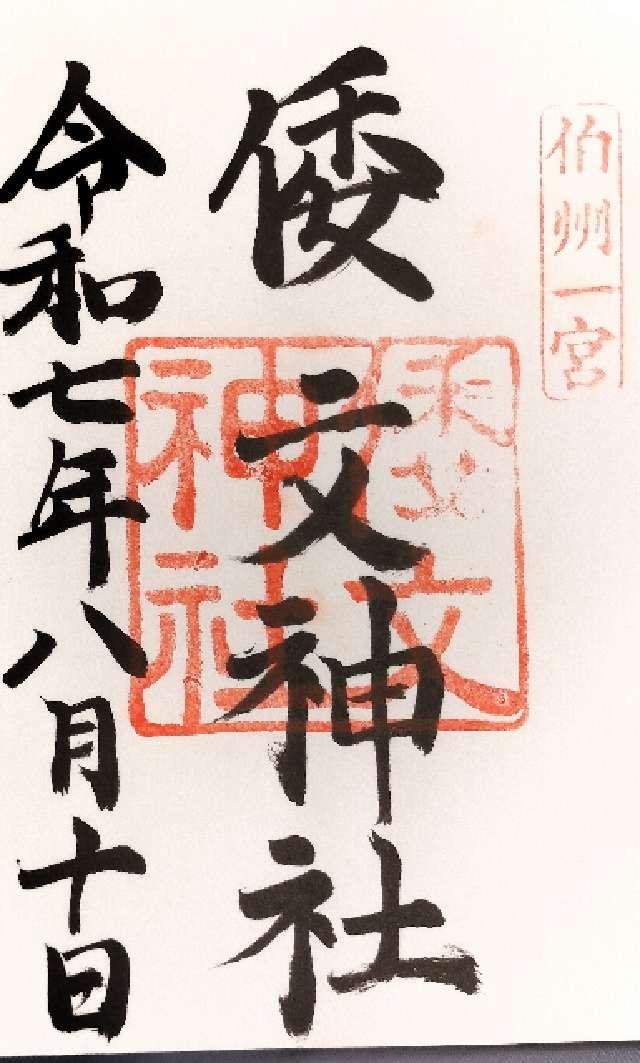 伯州一宮
倭文神社
倭文神社
令和七年八月十日